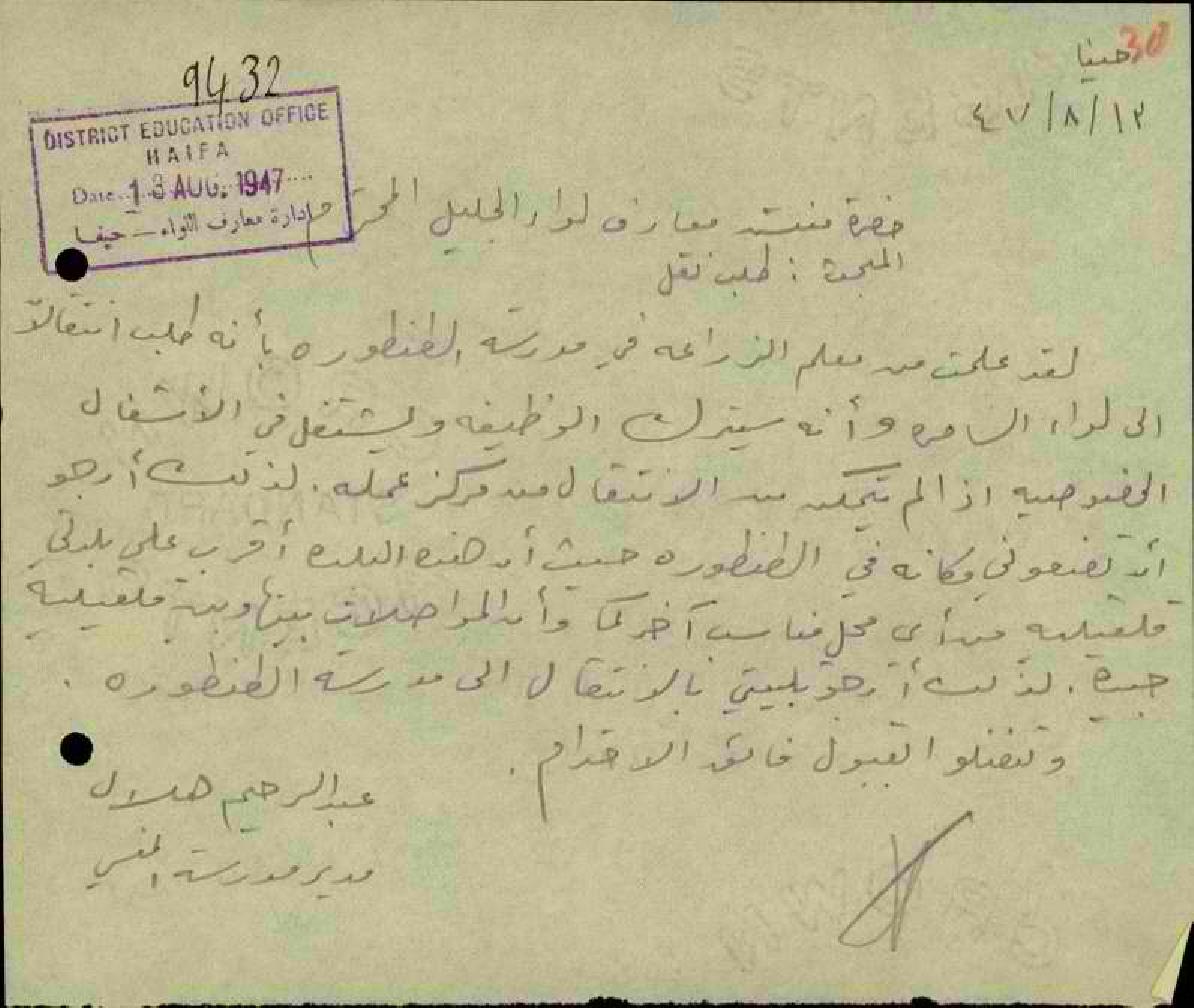 30
حيفا
١٣/٨/٤٧
9432
DISTRICT EDUCATION OFFICE
HAIFA
Date 13 AUG. 1947
ادارة معارف اللواء — حيفا
حضرة مفتش معارف لواء الجليل المحترم
المبحث : طلب نقل
لقد علمت من معلم الزراعه في مدرسة الطنطوره بأنه طلب انتقالاً
الى لواء السامره وأنه سيترك الوظيفه ويشتغل في الأشغال
الخصوصيه اذا لم يتمكن من الانتقال من مركز عمله. لذلك أرجو
أن تضعوني مكانه في الطنطوره حيث أن هذه البلده أقرب علي بلدتي
قلقيليه من أي محل مناسب آخر كما وأن المواصلات بينها وبين قلقيلية
جيدة. لذلك أرجو تلبيتي بالانتقال الى مدرسة الطنطوره .
وتفضلوا بقبول فائق الاحترام .
عبد الرحيم هلال
مدير مدرسة المنسي